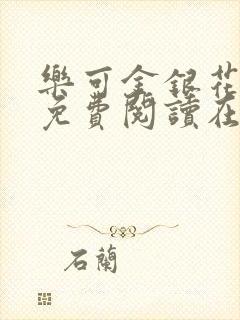 樂可金銀花
免費閱讀在
石蘭